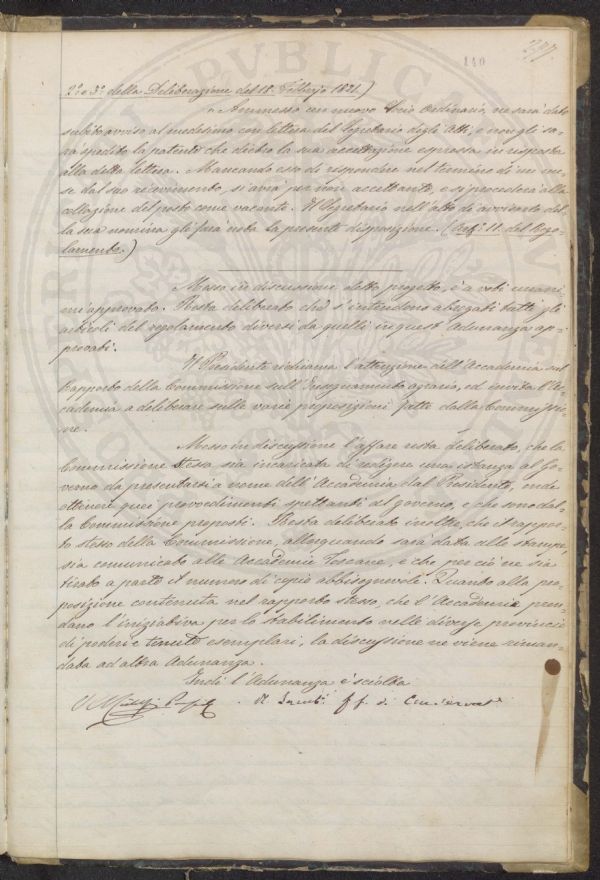 140
2.° e 3.° della Deliberazione del 18 Febbrajo 1821.)
"Ammesso un nuovo Socio Ordinario, ne sarà dato
subito avviso al medesimo con lettera del Segretario degli Atti, e non gli sa-
rà spedita la patente che dietro la sua accettazione espressa in risposta
alla detta lettera. Mancando esso di rispondere nel termine di un me-
se dal suo ricevimento, si avrà per non accettante, e si procederà alla
collazione del posto come vacante. Il Segretario nell'atto di avvisarlo del-
la sua nomina gli farà nota la presente disposizione. (Art.° 11. del Rego-
lamento.)
Messo in discussione detto progetto, è a voti unani-
mi approvato. Resta deliberato che s'intendono abrogati tutti gli
articoli del regolamento diversi da quelli in quest'Adunanza ap-
provati.
Il Presidente richiama l'attenzione dell'Accademia sul
rapporto della Commissione sull'Insegnamento agrario, ed invita l'Ac-
cademia a deliberare sulle varie proposizioni fatte dalla Commissio-
ne.
Messo in discussione l'affare resta deliberato, che la
Commissione stessa, sia incaricata di redigere una istanza al Go-
verno da presentarsi a nome dell'Accademia dal Presidente, onde
ottenere quei provvedimenti spettanti al governo, e che sono dal-
la Commissione proposti. Resta deliberato inoltre, che il rappor-
to stesso della Commissione, allorquando sarà data alle stampe,
sia comunicato alle Accademie Toscane, e che perciò ne sia
tirato a parte il numero di copie abbisognevole. Quanto alla pro-
posizione contenuta nel rapporto stesso, che l'Accademia pren-
dano l'iniziativa per lo stabilimento nelle diverse provincie
di poderi e tenute esemplari, la discussione ne viene riman-
data ad altra Adunanza.
Indi l'Adunanza è sciolta
ff. di